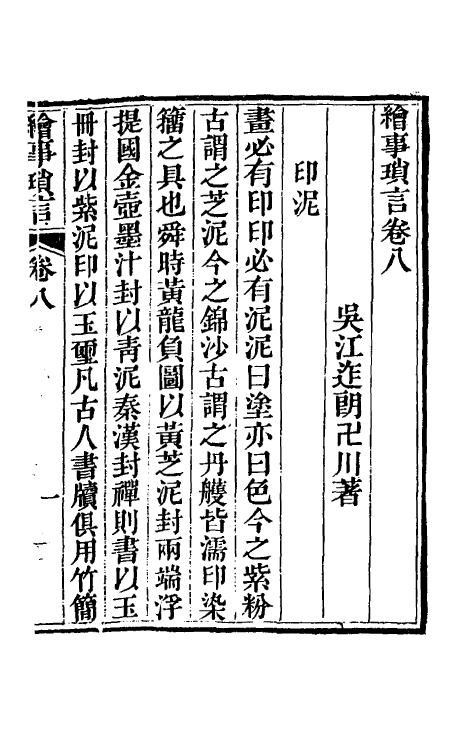 繪事瑣言卷八
吳江迮朗卍川著
印泥
畫必有印印必有泥泥曰塗亦曰色今之紫粉
古謂之芝泥今之錦沙古謂之丹雘皆濡印染
籀之具也舜時黃龍負圖以黃芝泥封兩端浮
提國金壺墨汁封以靑泥秦漢封禪則書以玉
冊封以紫泥印以玉璽凡古人書牘俱用竹簡
繪事瑣言 卷八 一